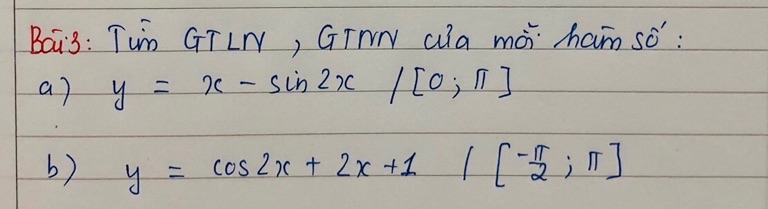 Bài 3: Tìm GTLN, GTNN của mỗi hàm số:
a) y = x - sin2x / [0; π]
b) y = cos2x + 2x + 1 / [-π/2; π]